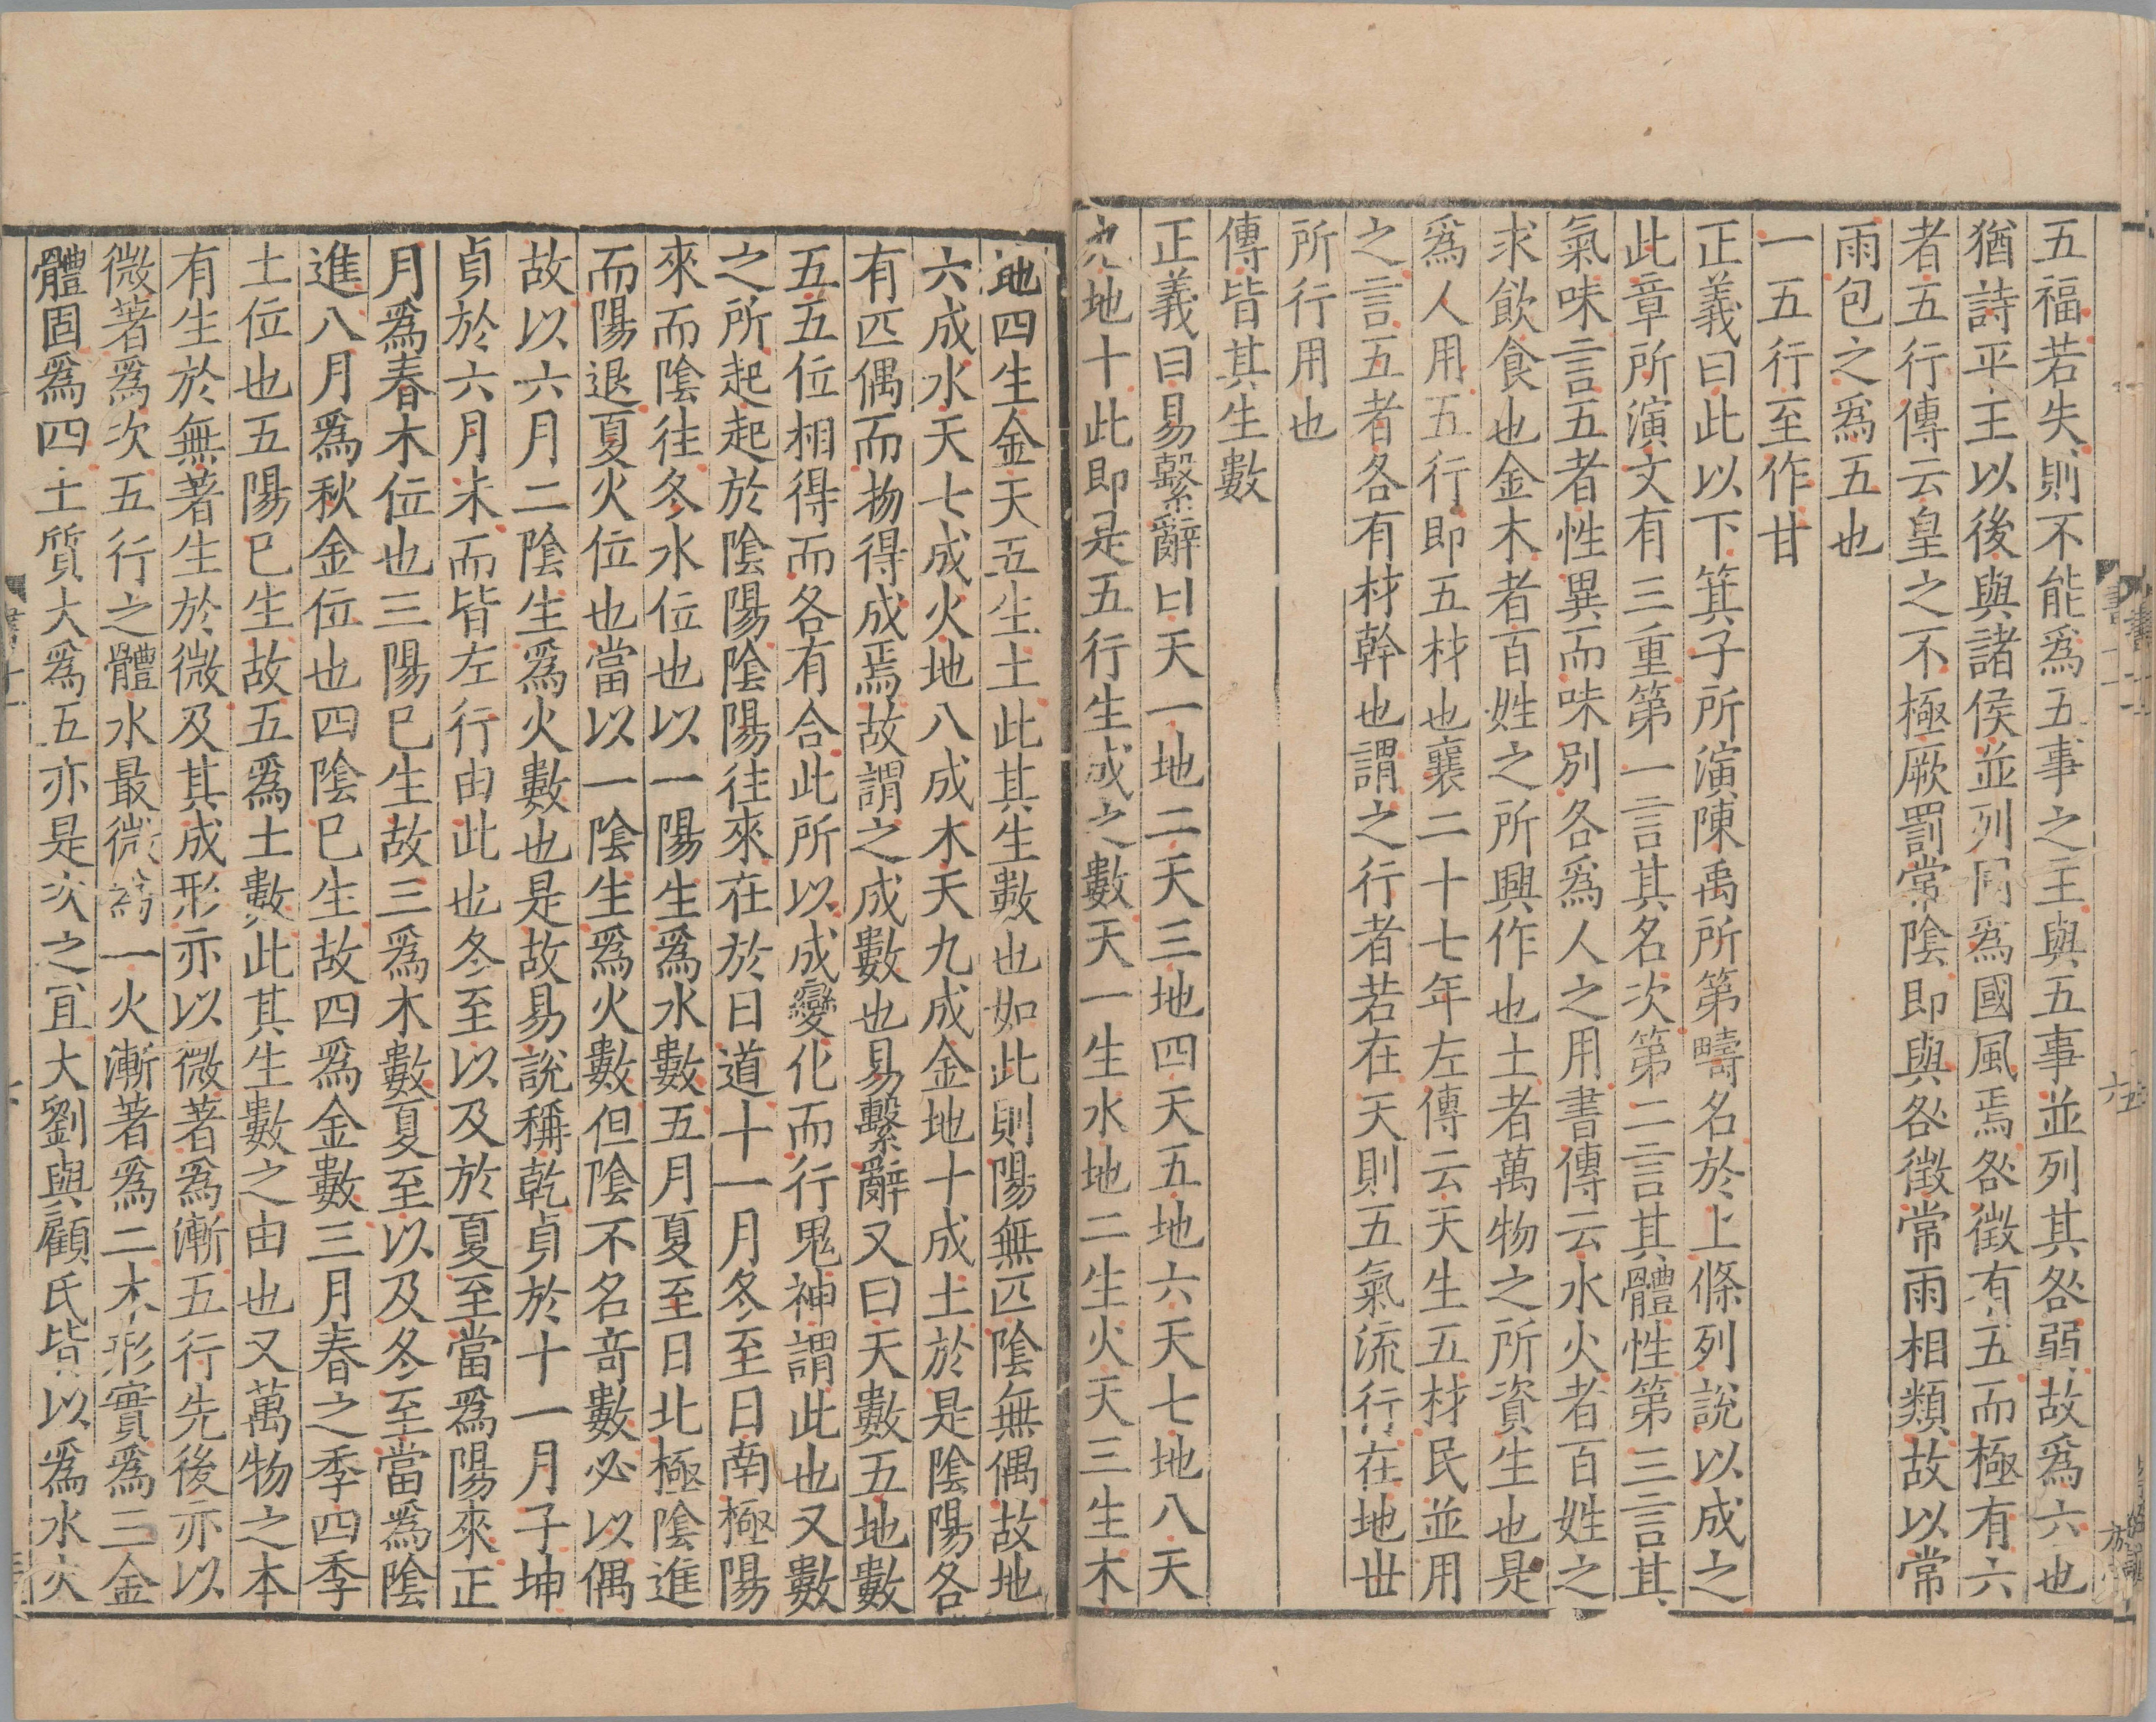 五福若失則不能爲五事之主與五事並列其咎弱故爲六也
猶詩平王以後與諸侯並列同爲國風焉咎徵有五而極有六
者五行傳云皇之不極厥罰常陰即與咎徵常雨相類故以常
雨包之爲五也
一五行至作甘
正義曰此以下箕子所演陳禹所第疇名於上條列說以成之
此章所演文有三重第一言其名次第二言其體性第三言其
氣味言五者性異而味別各爲人之用書傳云水火者百姓之
求飲食也金木者百姓之所興作也土者萬物之所資生也是
爲人用五行即五材也襄二十七年左傳云天生五材民並用
之言五者各有材幹也謂之行者若在天則五氣流行在地世
所行用也
傳皆其生數
正義曰易繫辭曰天一地二天三地四天五地六天七地八天
九地十此即是五行生成之數天一生水地二生火天三生木
地四生金天五生土此其生數也如此則陽無匹陰無偶故地
六成水天七成火地八成木天九成金地十成土於是陰陽各
有匹偶而物得成焉故謂之成數也易繫辭又曰天數五地數
五五位相得而各有合此所以成變化而行鬼神謂此也又數
之所起起於陰陽陰陽往來在於日道十一月冬至日南極陽
來而陰往冬水位也以一陽生爲水數五月夏至日北極陰進
而陽退夏火位也當以一陰生爲火數但陰不名奇數必以偶
故以六月二陰生爲火數也是故易說稱乾貞於十一月子坤
貞於六月未而皆左行由此也冬至以及於夏至當爲陽來正
月爲春木位也三陽巳生故三爲木數夏至以及冬至當爲陰
進八月爲秋金位也四陰巳生故四爲金數三月春之季四季
土位也五陽巳生故五爲土數此其生數之由也又萬物之本
有生於無著生於微及其成形亦以微著爲漸五行先後亦以
微著爲次五行之體水最微爲一火漸著爲二木形實爲三金
體固爲四土質大爲五亦是次之宜大劉與顧氏皆以爲水火